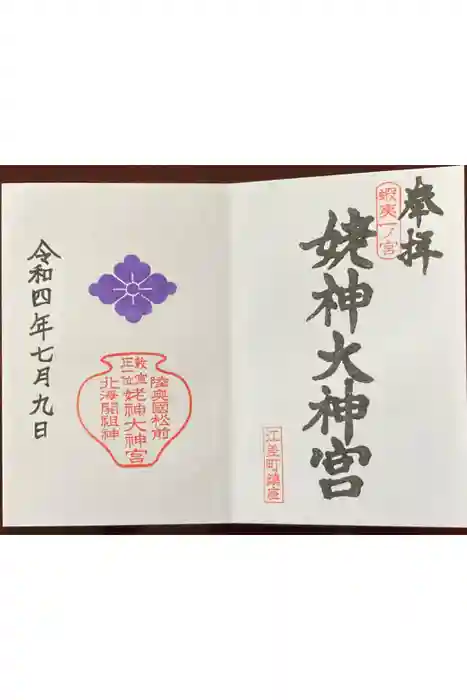 奉拝
蝦夷一ノ宮
姥神大神宮
江差町鎮座
陸奥國松前
勅宣
正一位
姥神大神宮
北海開祖神
令和四年七月九日